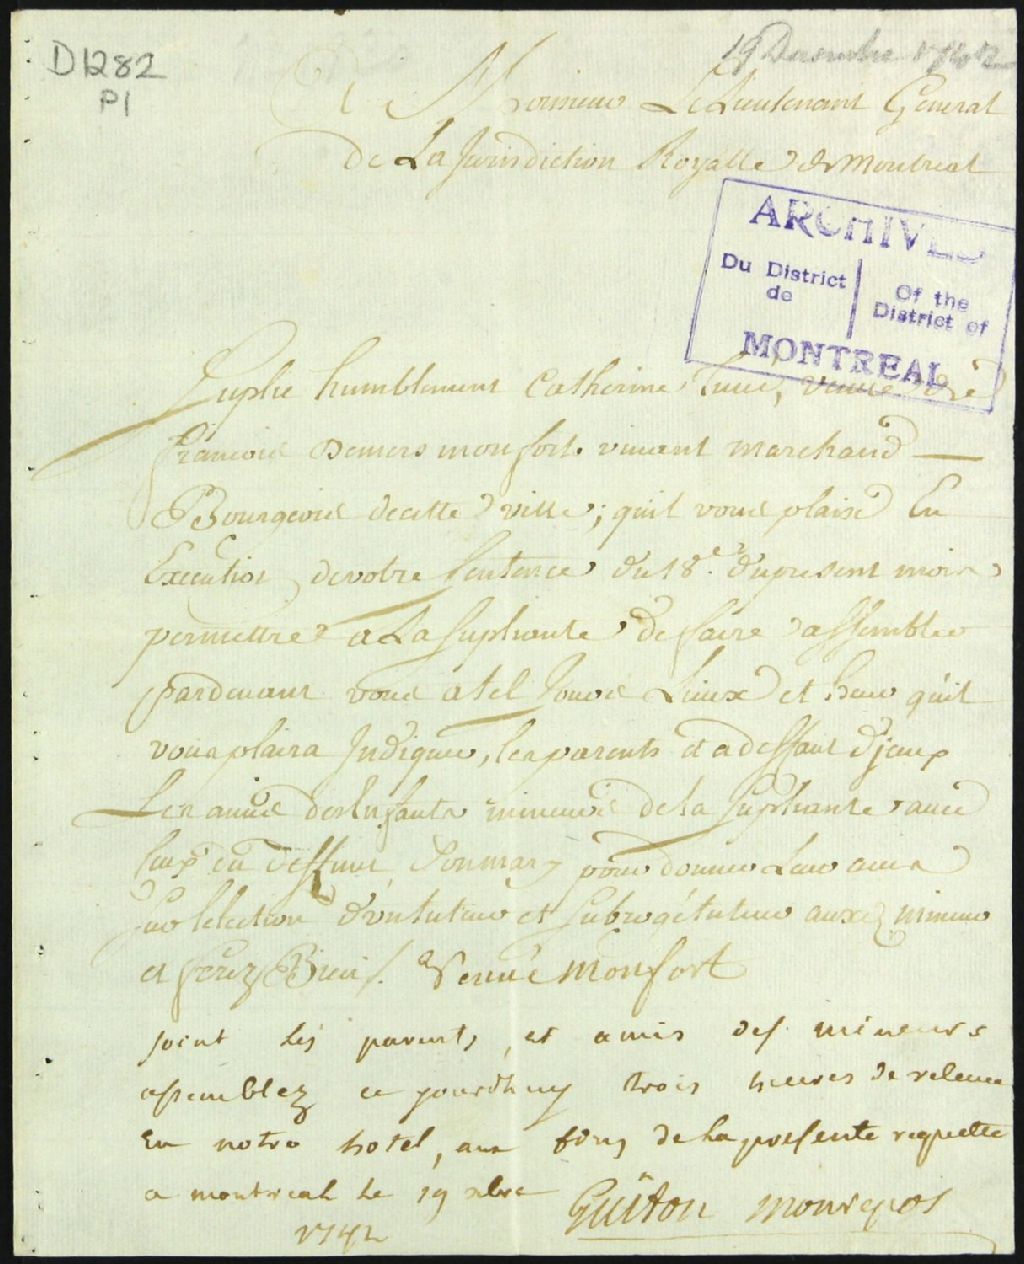 D1282
P1
19 Decembre 1742
A Monsieur Le Lieutenant General
De La Jurisdiction Royalle de Montreal
ARCHIVES
Du District de
Of the District of
MONTREAL
Suplie humblement Catherine veuve
francois Demers monfort vivant marchand
Bourgeois de cette ville; quil vous plaise En
Execution de votre sentence du 18e. du present mois
permettre a La supliante de faire assembler
pardevant vous a tel Jour Lieux et heur quil
vous plaira Indiquer, les parents et a deffaut d'jceux
Les amis des Enfants mineurs de la supliante avec
deffunt son mary pour donner Leur avis
sur lelection d'un tuteur et subrogé tuteur auxdz mineurs
et ferez Bien /. Veuve Monfort
soient les parents, et amis des mineurs
assemblez ce jourdhuy trois heures de relevée
En notre hotel, aux fins de la presente requette
a montreal le 19 xbre
1742
Guiton Monrepos